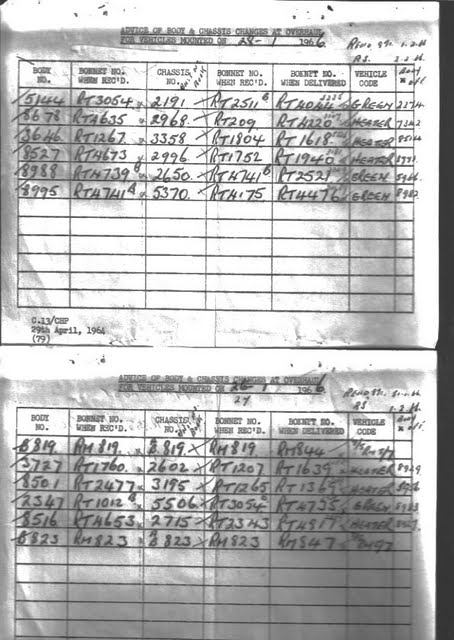 ADVICE OF BODY & CHASSIS CHANGES AT OVERHAUL
FOR VEHICLES MOUNTED ON 28-1 1966
BODY NO. BONNET NO. WHEN REC'D. CHASSIS NO. BONNET NO. WHEN REC'D. BONNET NO. WHEN DELIVERED VEHICLE CODE
5144 RT3054 2191 RT2511 GREEN
8678 RT4635 2968 RT209 RT4220 HEATER
3646 RT1267 3358 RT1804 RT1618 HEATER
8527 RT4673 2996 RT1752 RT1940 HEATER
8988 RT4739 2650 RT4741 RT2521 GREEN
8995 RT4741 5370 RT4175 RT4476 GREEN
C.13/CHP
29th April, 1964
(79)
ADVICE OF BODY & CHASSIS CHANGES AT OVERHAUL
FOR VEHICLES MOUNTED ON 1966
27
BODY NO. BONNET NO. WHEN REC'D. CHASSIS NO. BONNET NO. WHEN REC'D. BONNET NO. WHEN DELIVERED VEHICLE CODE
B819 RM819 B819 RM819 RM844
3727 RT1760 2602 RT1207 RT1639 HEATER
8501 RT2477 3195 RT1265 RT1369 HEATER
2347 RT1012 5506 RT3054 RT4735 GREEN
8516 RT4653 2715 RT2343 RT4817 HEATER
B823 RM823 B823 RM823 RM847